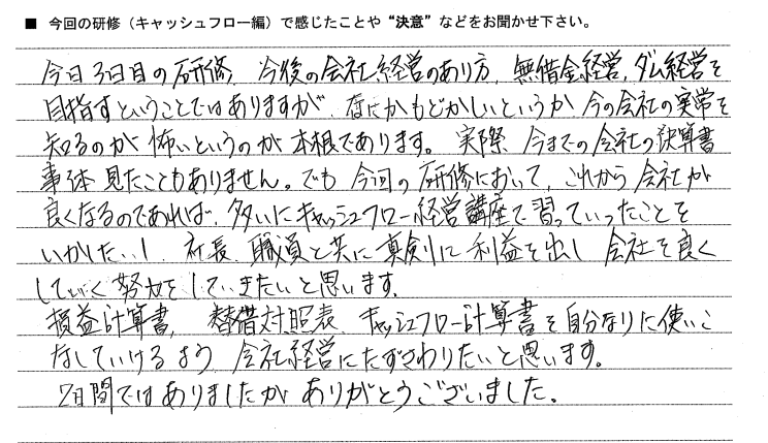 ■ 今回の研修（キャッシュフロー編）で感じたことや“決意”などをお聞かせ下さい。
今日3日目の研修、今後の会社経営のあり方、無借金経営、ダム経営を
目指すということではありますが、なにかもどかしいというか、今の会社の実態を
知るのが怖いというのが本根であります。実際、今までの会社の決算書
事体見たこともありません。でも今回の研修において、これから会社が
良くなるのであれば、多いにキャッシュフロー経営講座で習っていったことを
いかしたい！社長、職員と共に真剣に利益を出し会社を良く
していく努力をしていきたいと思います。
損益計算書、替借対照表、キャッシュフロー計算書を自分なりに使いこ
なしていけるよう、会社経営にたずさわりたいと思います。
2日間ではありましたがありがとうございました。